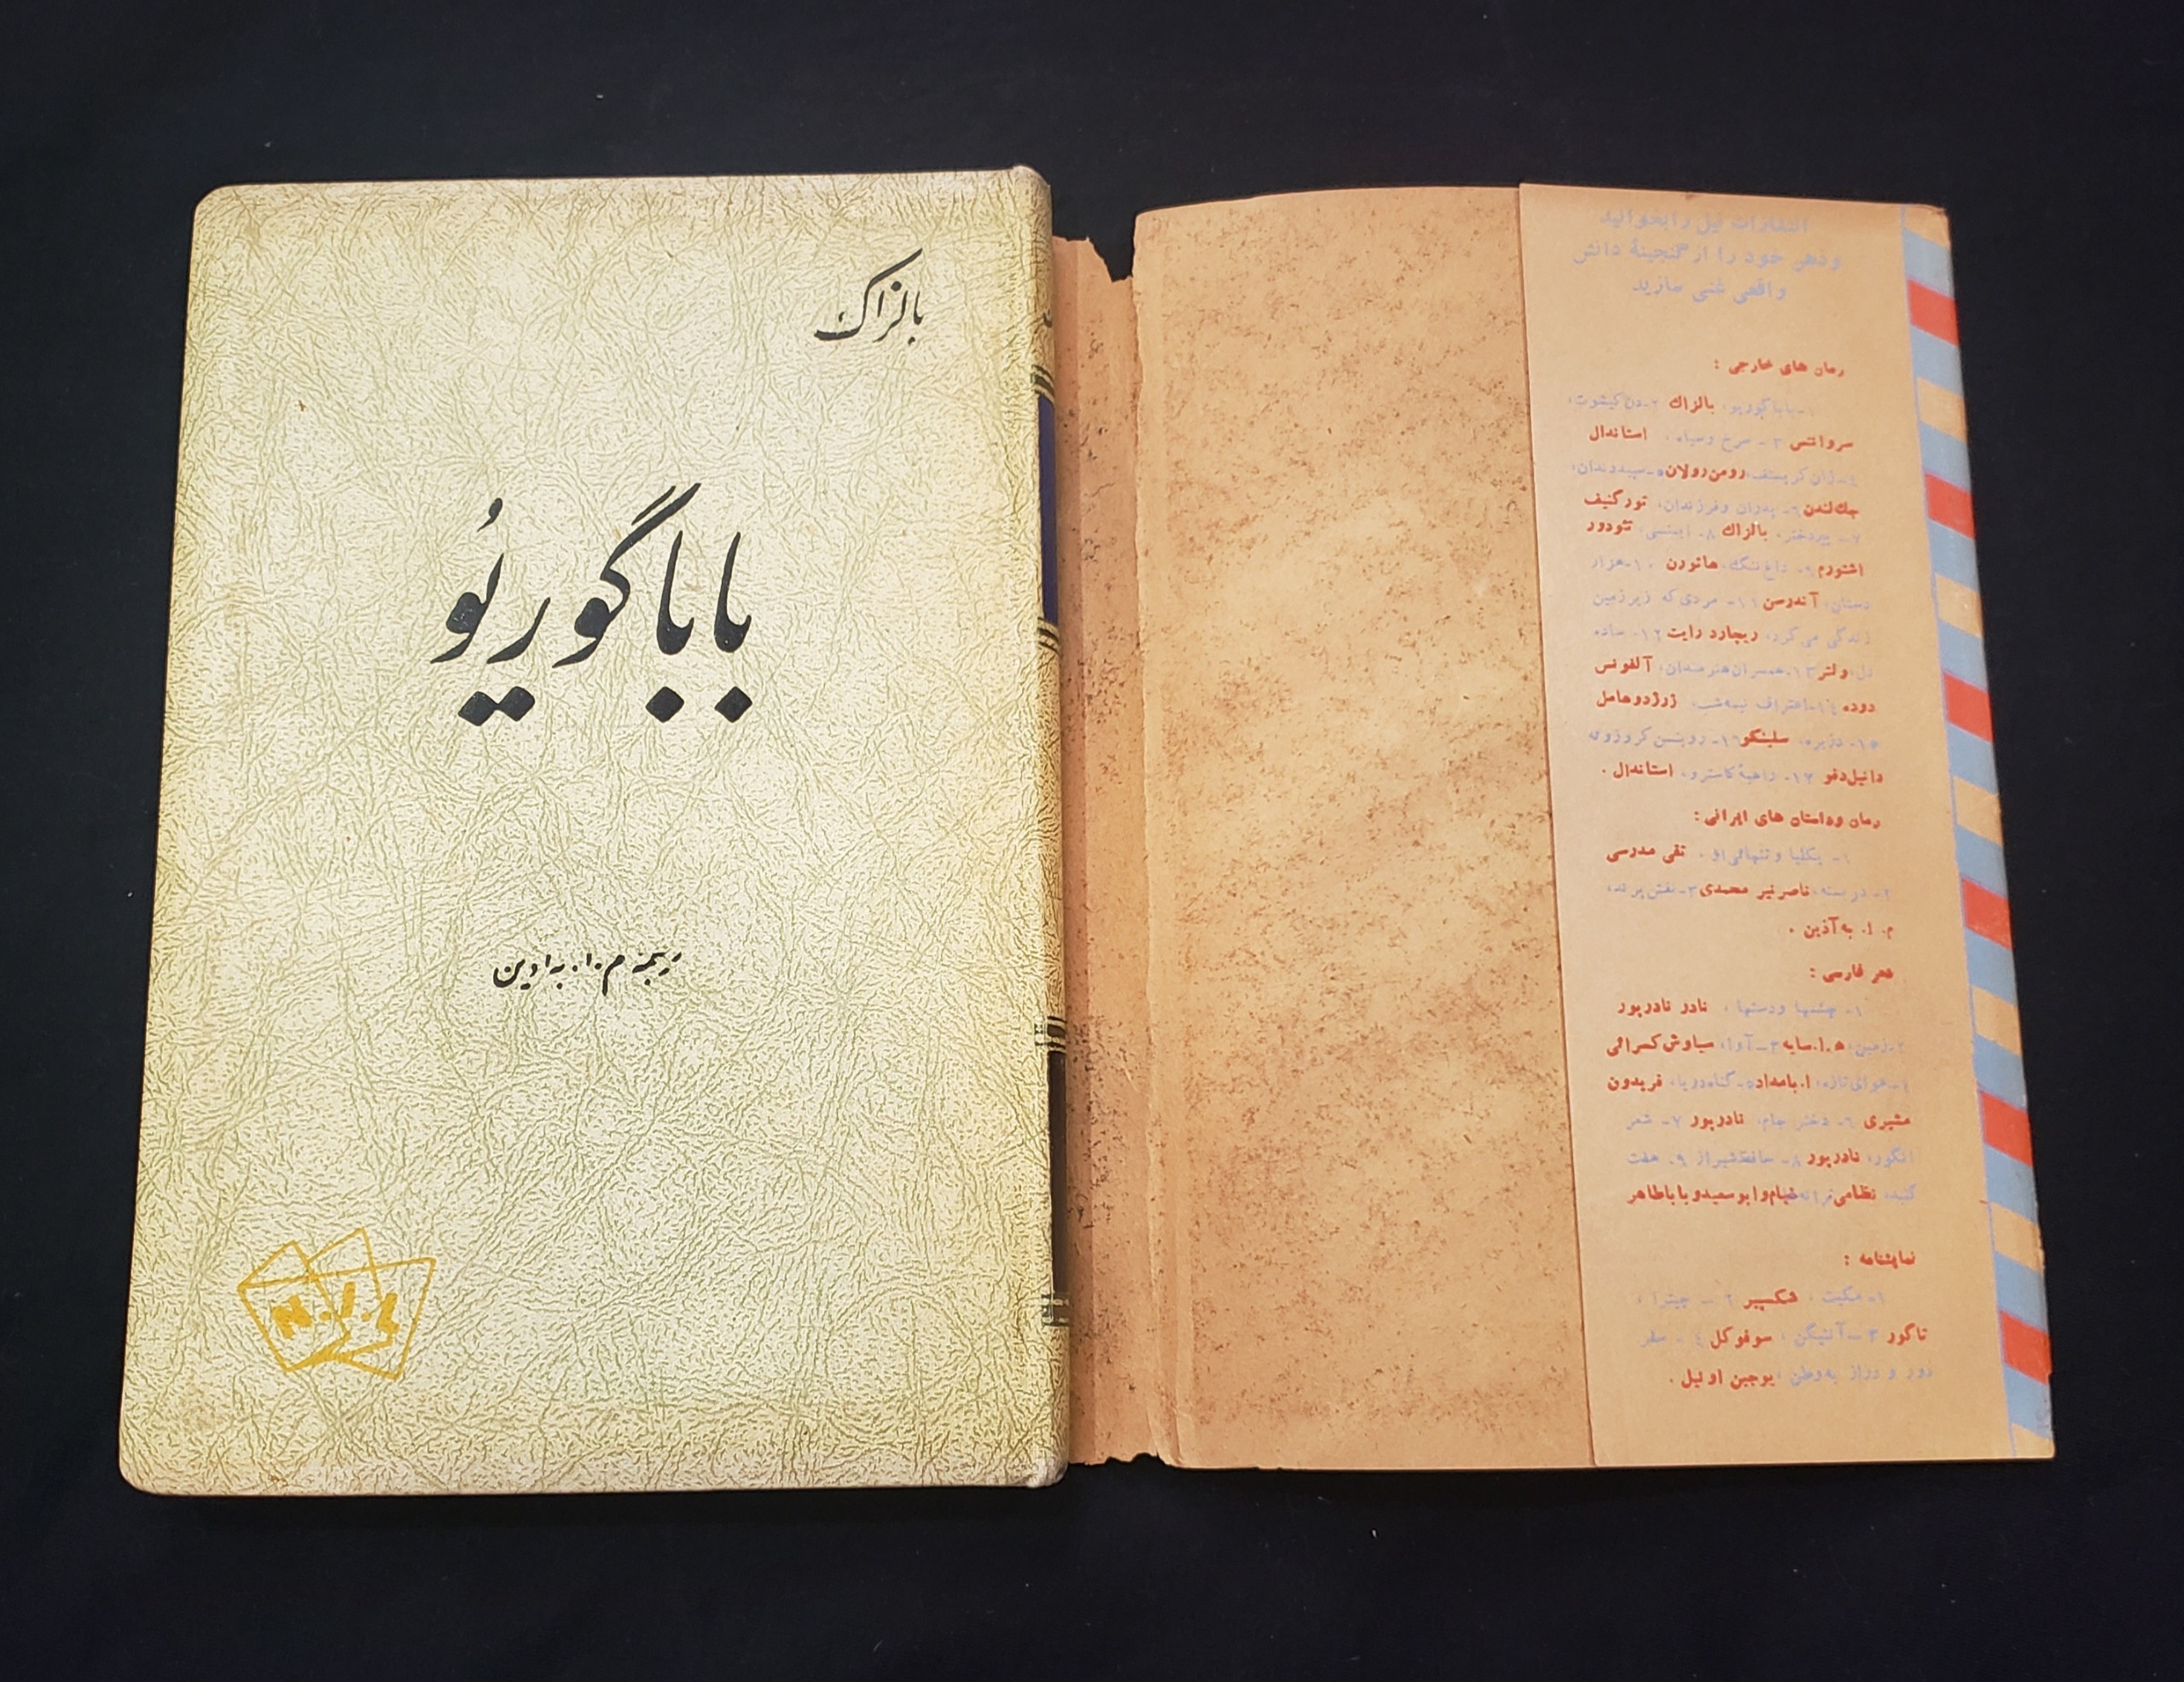 بالزاک
باباگوریو
ترجمه م.ا. به آذین
N.I.L
انتشارات نیل را بخوانید
وذهن خود را از گنجینهٔ دانش
واقعی غنی سازید
رمان های خارجی :
۱- باباگوریو، بالزاک ۲- دن کیشوت،
سروانتس ۳ - سرخ وسیاه ، استاندال
٤- ژان کریستف، رومن رولان ٥- سپیددندان،
جك لندن ٦- پدران وفرزندان، تورگنیف
۷- پیردختر، بالزاک ۸- ایمنسی، تئودور
اشتورم ۹- داغ ننگ، هاثورن ۱۰- هزار
دستان، آندرسن ۱۱- مردی که زیرزمین
زندگی می کرد، ریچارد رایت ۱۲- ساده
دل، ولتر ۱۳- همسران هنرمندان، آلفونس
دوده ۱٤- اعتراف نیمه شب، ژرژدوهامل
۱٥- دزیره، سلینکو ۱٦- روبنسن کروزوئه
دانیل دفو ۱۷- راهبهٔ کاسترو، استاندال .
رمان وداستان های ایرانی :
۱- یکلیا وتنهائی او ، تقی مدرسی
۲- دربسته، ناصر نیر محمدی ۳- نقش پرند،
م. ا. به آذین .
شعر فارسی :
۱- چشمها ودستها ، نادر نادرپور
۲- زمین، ه.ا.سایه ۳- آوا، سیاوش کسرائی
٤- هوای تازه، ا.بامداد ٥- گناه دریا، فریدون
مشیری ٦- دختر جام، نادرپور ۷- شعر
انگور، نادرپور ۸- حافظ شیراز ۹- هفت
گنبد، نظامی ترانه‌ها خیام وابوسعید وباباطاهر
نمایشنامه :
۱- مکبث ، شکسپیر ۲ - چیترا ،
تاگور ۳ - آنتیگن ، سوفوکل ٤ - سفر
دور و دراز به وطن ، یوجین اونیل .